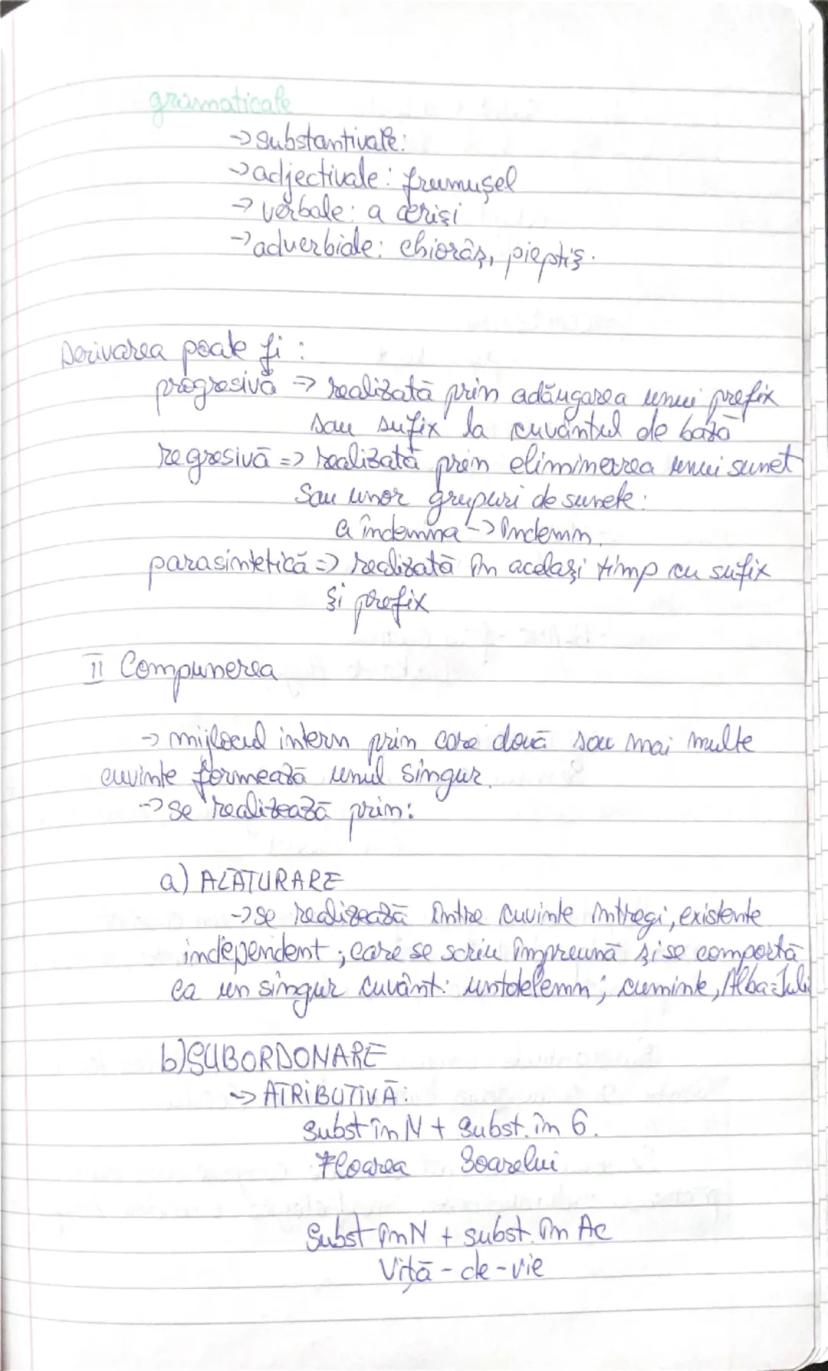 gramaticale
→ substantivale:
→ adjectivale: frumușel
→ verbale: a cerși
→ adverbiale: chiorâș, pieptiș.
Derivarea poate fi:
progresivă => realizată prin adăugarea unui prefix
sau sufix la cuvântul de bază
regresivă => realizată prin eliminarea unui sunet
sau unor grupuri de sunete:
a îndemna -> îndemn
parasintetică => realizată în același timp cu sufix
și prefix
II Compunerea
→ mijlocul intern prin care două sau mai multe
cuvinte formează unul singur.
→ se realizează prin:
a) ALĂTURARE
→ se realizează între cuvinte întregi, existente
independent; care se scriu împreună și se comportă
ca un singur cuvânt: untdelemn; cuminte, Alba-Iuli
b) SUBORDONARE
→ ATRIBUTIVĂ:
Subst în N + Subst. în G.
Floarea Soarelui
Subst în N + subst. în Ac
Viță-de-vie